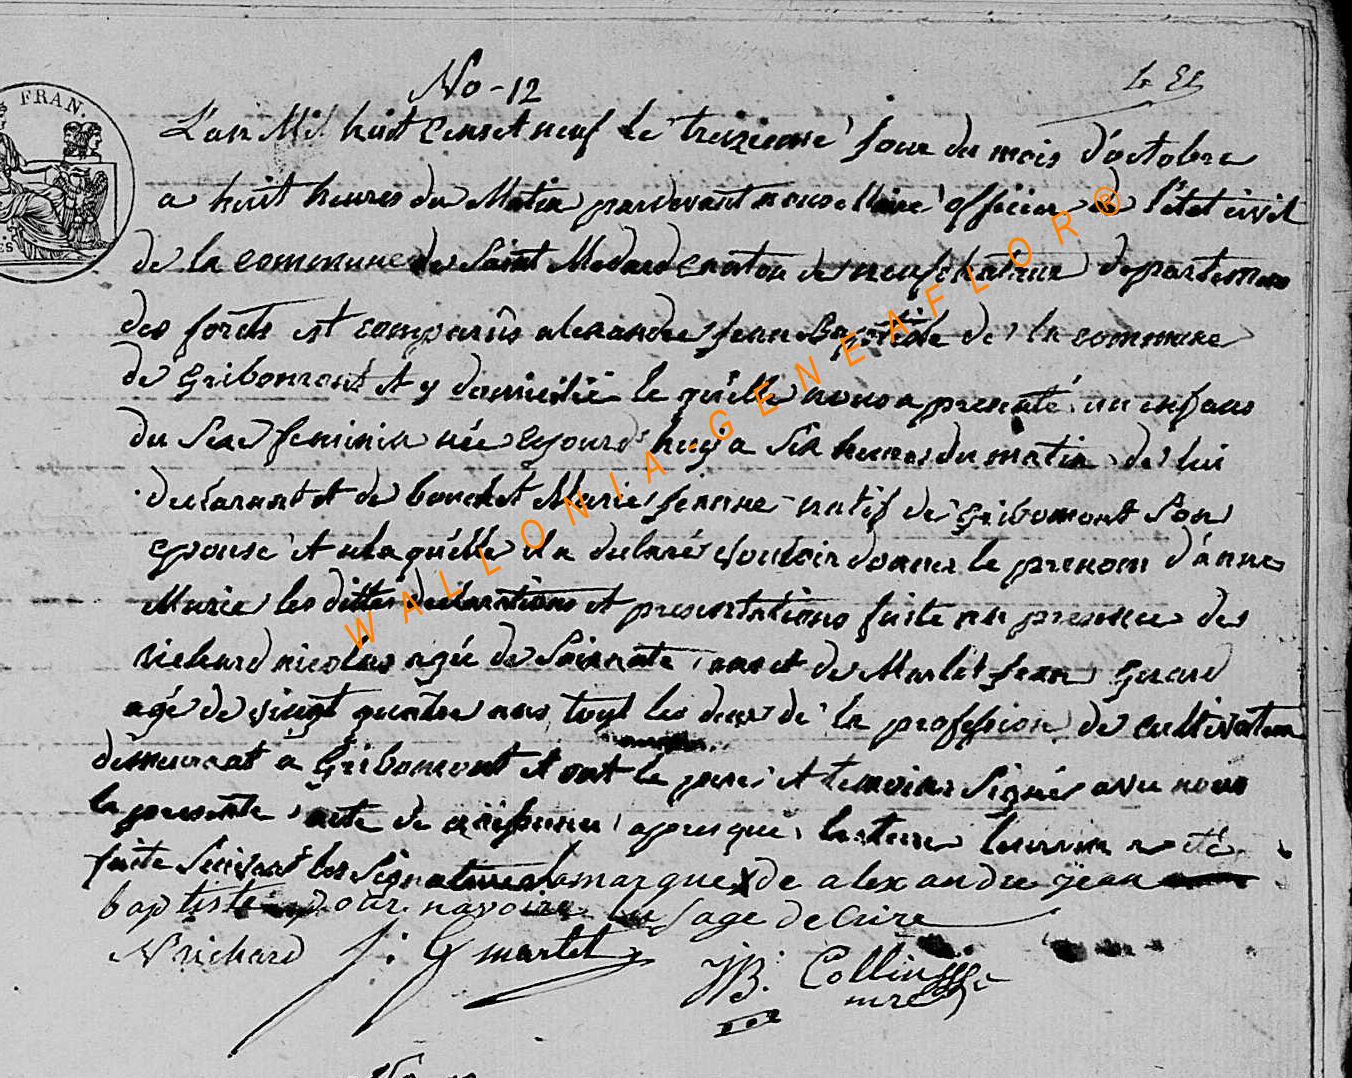 FRAN.
No - 12
L'an Mil huit Cens et neuf le treizieme Jour du mois d'octobre
a huit heures du Matin pardevant nous Maire officier de l'état civil
de la commune de Saint Medard canton de neufchateau departement
des forets est comparûs alexandre Jean Baptiste de la commune
de Gribomont et y domicilié le quelle nous a presenté un enfans
du Sexe feminin née ce jourd'huy a Six heures du matin de lui
declarant et de bouchet Marie Jeanne natif de Gribomont Son
epouse et a laquelle il a declaré vouloir donner le prenom d'anne
Marie les dittes declarations et presentations faite en presence des
richard nicolas agée de Soixante ans et de Marlet Jean Gerard
agé de vingt quatre ans tout les deux de la profession de cultivateur
demeurant a Gribomont et ont le pere et temoins Signés avec nous
le presente acte de naissance apres que lecture leurs en a été
faite Suivent les Signatures la marque X de alexandre jean
baptiste pour navoire lusage decrire
N richard J: G martlet JB: Collin
mre
WALLONIA-GENEAFLOR®